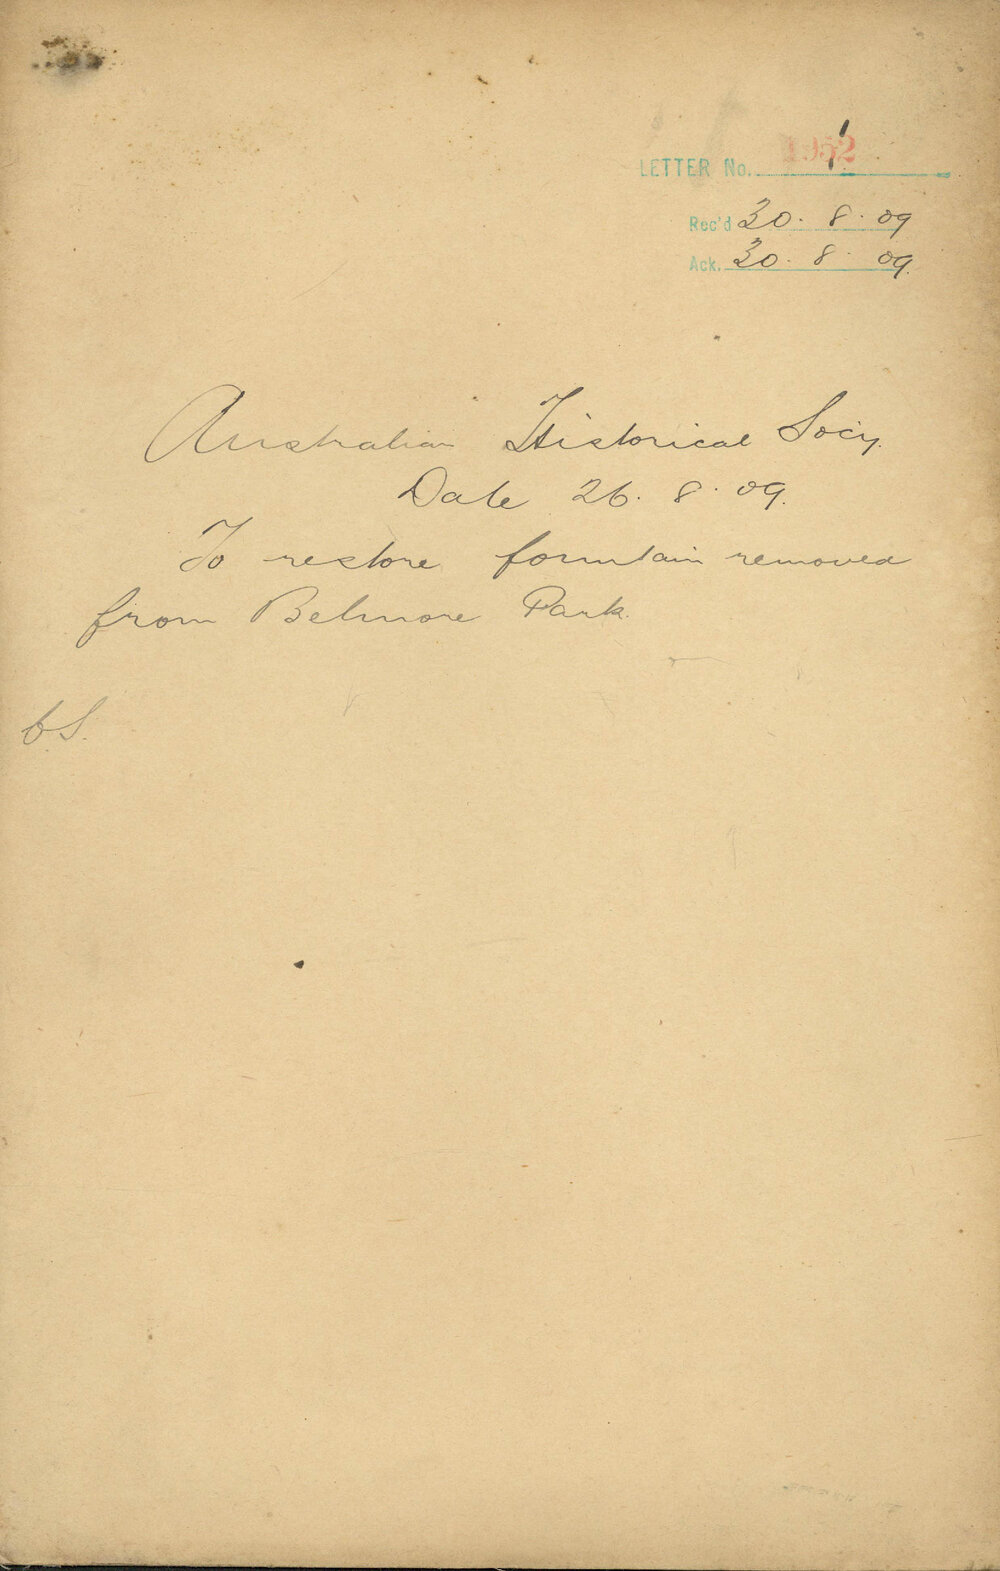 LETTER No. 1952
Rec'd 30. 8. 09
Ack. 30. 8. 09.
Australian Historical Socy.
Date 26. 8. 09.
To restore fountain removed
from Belmore Park.
C.S.